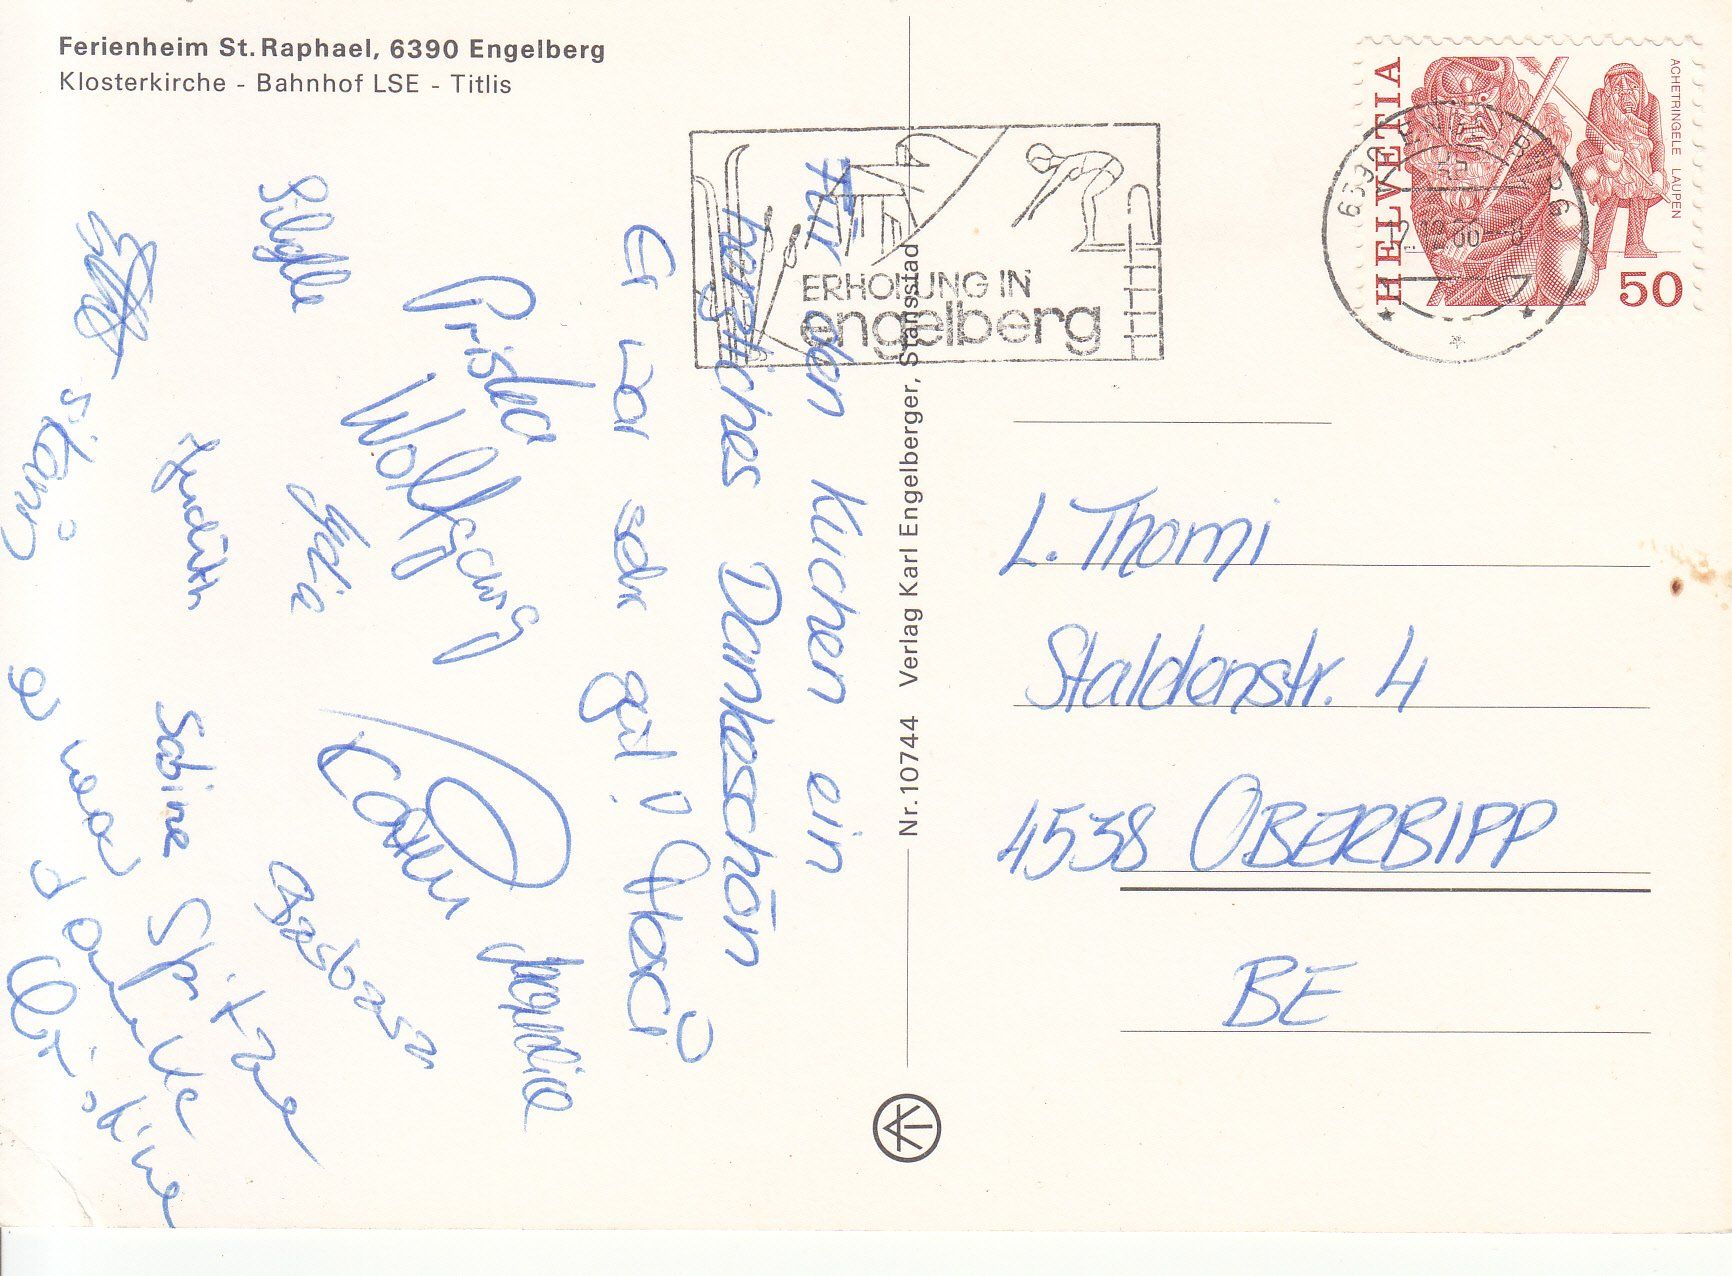 Ferienheim St. Raphael, 6390 Engelberg
Klosterkirche - Bahnhof LSE - Titlis
Für den Kuchen ein
herzliches Dankeschön
Er war sehr gut!
Priska
Wolfgang
Sibylle
Judith
Sabine
Spitze
Barbara
Christine
ERHOLUNG IN
engelberg
Nr. 10744 Verlag Karl Engelberger, Stansstad
HELVETIA
ACHETRINGELE LAUPEN
50
6390 ENGELBERG
L. Thomi
Staldenstr. 4
4538 OBERBIPP
BE